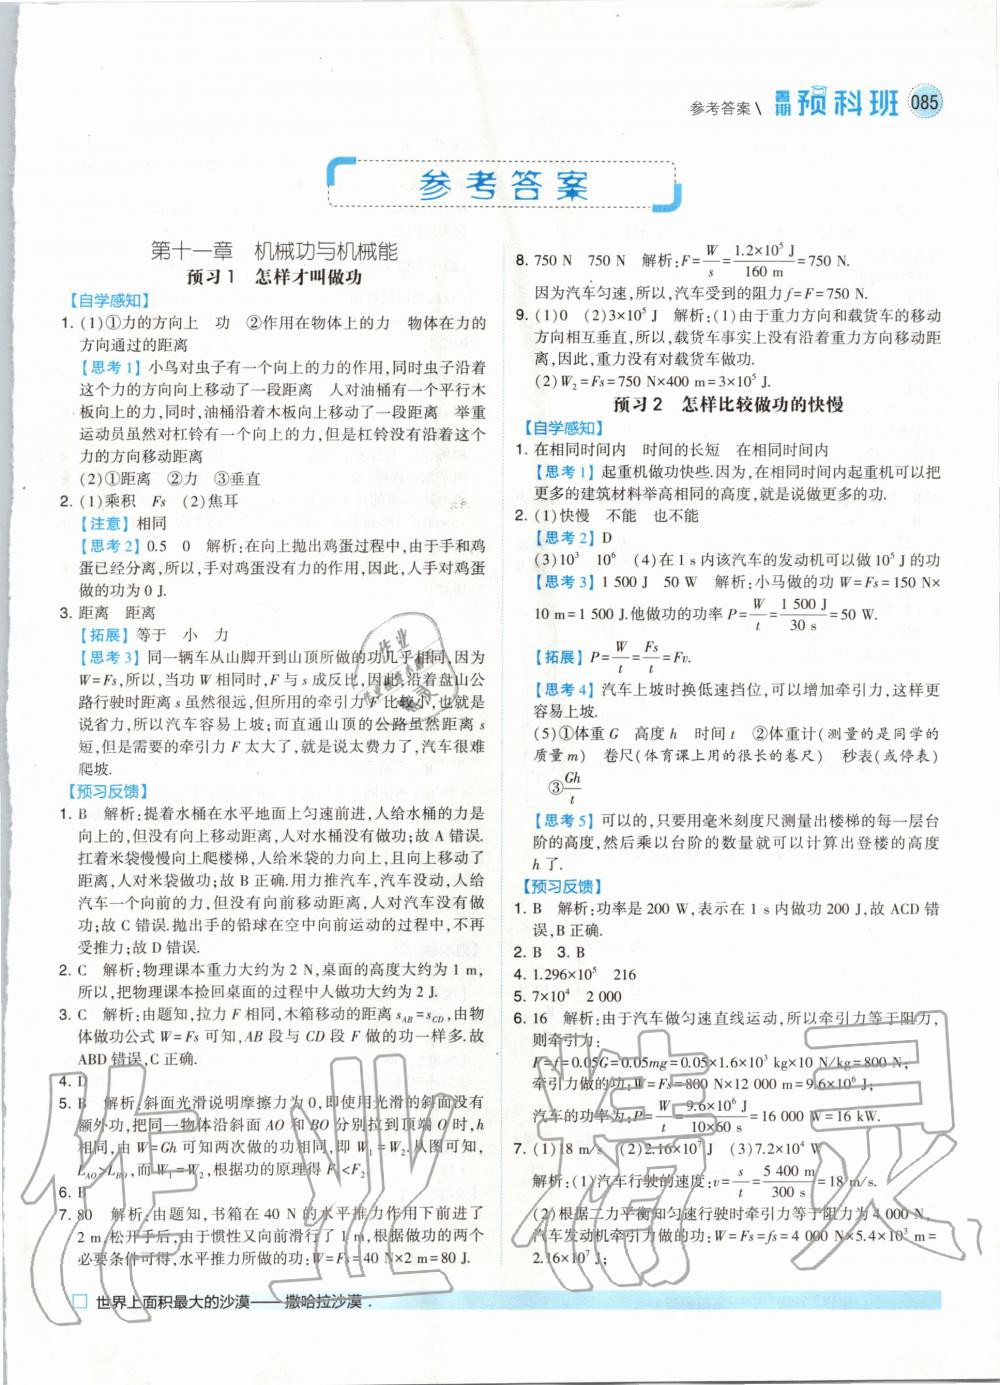 参考答案\ 暑期 预科班 085
参考答案
第十一章 机械功与机械能
预习1 怎样才叫做功
【自学感知】
1. (1)①力的方向上 功 ②作用在物体上的力 物体在力的
方向通过的距离
【思考1】 小鸟对虫子有一个向上的力的作用,同时虫子沿着
这个力的方向向上移动了一段距离 人对油桶有一个平行木
板向上的力,同时,油桶沿着木板向上移动了一段距离 举重
运动员虽然对杠铃有一个向上的力,但是杠铃没有沿着这个
力的方向移动距离
(2)①距离 ②力 ③垂直
2. (1)乘积 Fs (2)焦耳
【注意】相同
【思考2】0.5 0 解析:在向上抛出鸡蛋过程中,由于手和鸡
蛋已经分离,所以,手对鸡蛋没有力的作用,因此,人手对鸡蛋
做的功为0 J.
3. 距离 距离
【拓展】等于 小 力
【思考3】 同一辆车从山脚开到山顶所做的功几乎相同,因为
W=Fs,所以,当功 W 相同时,F 与 s 成反比,因此,沿着盘山公
路行驶时距离 s 虽然很远,但所用的牵引力 F 比较小,也就是
说省力,所以汽车容易上坡;而直通山顶的公路虽然距离 s
短,但是需要的牵引力 F 太大了,就是说太费力了,汽车很难
爬坡.
【预习反馈】
1. B 解析:提着水桶在水平地面上匀速前进,人给水桶的力是
向上的,但没有向上移动距离,人对水桶没有做功;故 A 错误.
扛着米袋慢慢向上爬楼梯,人给米袋的力向上,且向上移动了
距离,人对米袋做功;故 B 正确.用力推汽车,汽车没动,人给
汽车一个向前的力,但没有向前移动距离,人对汽车没有做
功;故 C 错误.抛出手的铅球在空中向前运动的过程中,不再
受推力;故 D 错误.
2. C 解析:物理课本重力大约为 2 N,桌面的高度大约为 1 m,
所以,把物理课本捡回桌面的过程中人做功大约为 2 J.
3. C 解析:由题知,拉力 F 相同,木箱移动的距离 sAB=sCD,由物
体做功公式 W=Fs 可知,AB 段与 CD 段 F 做的功一样多.故
ABD 错误,C 正确.
4. D
5. B 解析:斜面光滑说明摩擦力为0,即使用光滑的斜面没有
额外功,把同一物体沿斜面 AO 和 BO 分别拉到顶端,由功
W=Gh 可知两次做的功相同,即 W₁=W₂.从图可知,
LAO>LBO,而 W₁=W₂,根据功的原理得 F₁<F₂.
6. B
7. 80 解析:由题知,书箱在 40 N 的水平推力作用下前进了
2 m,松开手后,由于惯性又向前滑行了 1 m,根据做功的两个
必要条件可得,水平推力所做的功:W=Fs=40 N×2 m=80 J.
8. 750 N 750 N 解析:F=W/s=1.2×10⁵ J/160 m=750 N.
因为汽车匀速,所以,汽车受到的阻力 f=F=750 N.
9. (1)0 (2)3×10⁵ J 解析:(1)由于重力方向和载货车的移动
方向相互垂直,所以,载货车事实上没有沿着重力方向移动距
离,因此,重力没有对载货车做功.
(2)W₂=Fs=750 N×400 m=3×10⁵ J.
预习2 怎样比较做功的快慢
【自学感知】
1. 在相同时间内 时间的长短 在相同时间内
【思考1】 起重机做功快些.因为,在相同时间内起重机可以把
更多的建筑材料举高相同的高度,就是说做更多的功.
2. (1)快慢 不能 也不能
【思考2】D
(3)10³ 10⁶ (4)在1 s内该汽车的发动机可以做10⁵ J的功
【思考3】1 500 J 50 W 解析:小马做的功 W=Fs=150 N×
10 m=1 500 J.他做功的功率 P=W/t=1 500 J/30 s=50 W.
【拓展】P=W/t=Fs/t=Fv.
【思考4】 汽车上坡时换低速挡位,可以增加牵引力,这样更
容易上坡.
(5)①体重 G 高度 h 时间 t ②体重计(测量的是同学的
质量 m) 卷尺(体育课上用的很长的卷尺) 秒表(或停表)
③Gh/t
【思考5】 可以的,只要用毫米刻度尺测量出楼梯的每一层台
阶的高度,然后乘以台阶的数量就可以计算出登楼的高度
h 了.
【预习反馈】
1. B 解析:功率是 200 W,表示在 1 s 内做功 200 J,故 ACD 错
误,B 正确.
2. B 3. B
4. 1.296×10⁵ 216
5. 7×10⁴ 2 000
6. 16 解析:由于汽车做匀速直线运动,所以牵引力等于阻力,
则牵引力:
F=f=0.05G=0.05mg=0.05×1.6×10³ kg×10 N/kg=800 N,
牵引力做的功:W=Fs=800 N×12 000 m=9.6×10⁶ J;
汽车的功率为:P=W/t=9.6×10⁶ J/10×60 s=16000 W=16 kW.
7. (1)18 m/s (2)2.16×10⁷ J (3)7.2×10⁴ W
解析:(1)汽车行驶的速度:v=s/t=5 400 m/300 s=18 m/s.
(2)根据二力平衡知匀速行驶时牵引力等于阻力为4 000 N,
汽车发动机牵引力做的功:W=Fs=fs=4 000 N×5.4×10³ m=
2.16×10⁷ J;
世界上面积最大的沙漠——撒哈拉沙漠.
作业精灵